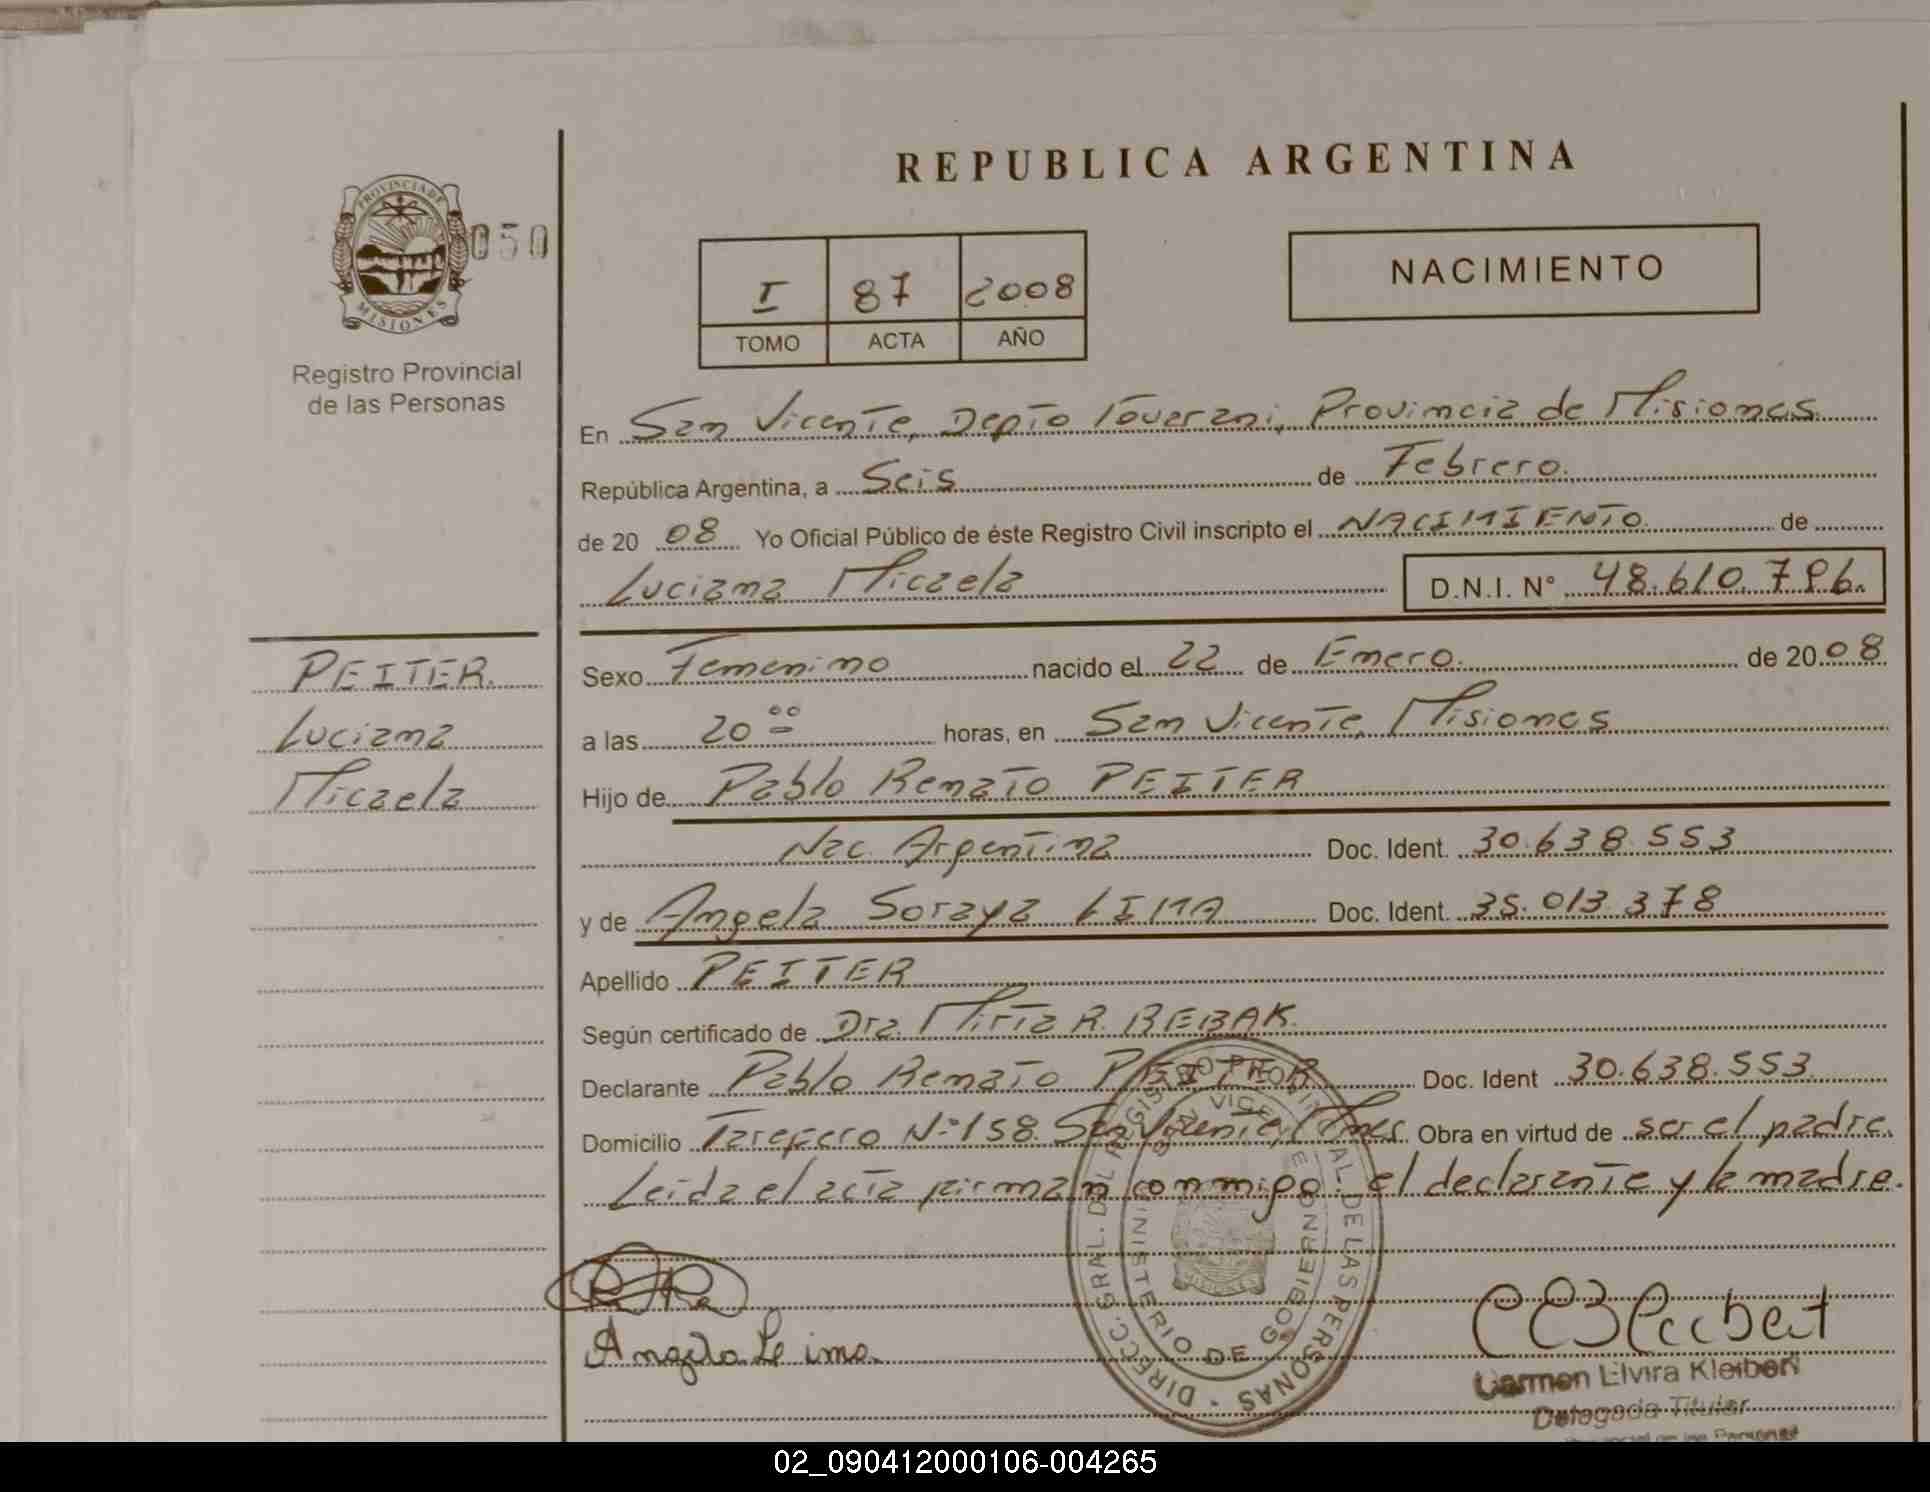 REPUBLICA ARGENTINA
PROVINCIA DE
MISIONES
050
Registro Provincial
de las Personas
I 87 2008
TOMO ACTA AÑO
NACIMIENTO
En San Vicente, Depto Guarani, Provincia de Misiones.
República Argentina, a Seis de Febrero.
de 20 08 Yo Oficial Público de éste Registro Civil inscripto el NACIMIENTO de
Luciana Micaela D.N.I. N° 48.610.796.
PEITER.
Luciana
Micaela
Sexo Femenino nacido el 22 de Enero. de 20 08
a las 20 00 horas, en San Vicente, Misiones
Hijo de Pablo Renato PEITER
Nac. Argentina Doc. Ident. 30.638.553
y de Angela Soraya LIMA Doc. Ident. 35.013.378
Apellido PEITER
Según certificado de Dra. Mirta R. REBAK.
Declarante Pablo Renato PEITER Doc. Ident 30.638.553.
Domicilio Tarefero N° 158. San Vicente, Mnes. Obra en virtud de ser el padre.
Leida el acta firman conmigo el declarante y la madre.
DIRECC. GRAL. DEL REGISTRO PROVINCIAL DE LAS PERSONAS
SAN VICENTE
MINISTERIO DE GOBIERNO
Angela Lima
Carmen Elvira Kleibert
Delegada Titular
02_090412000106-004265